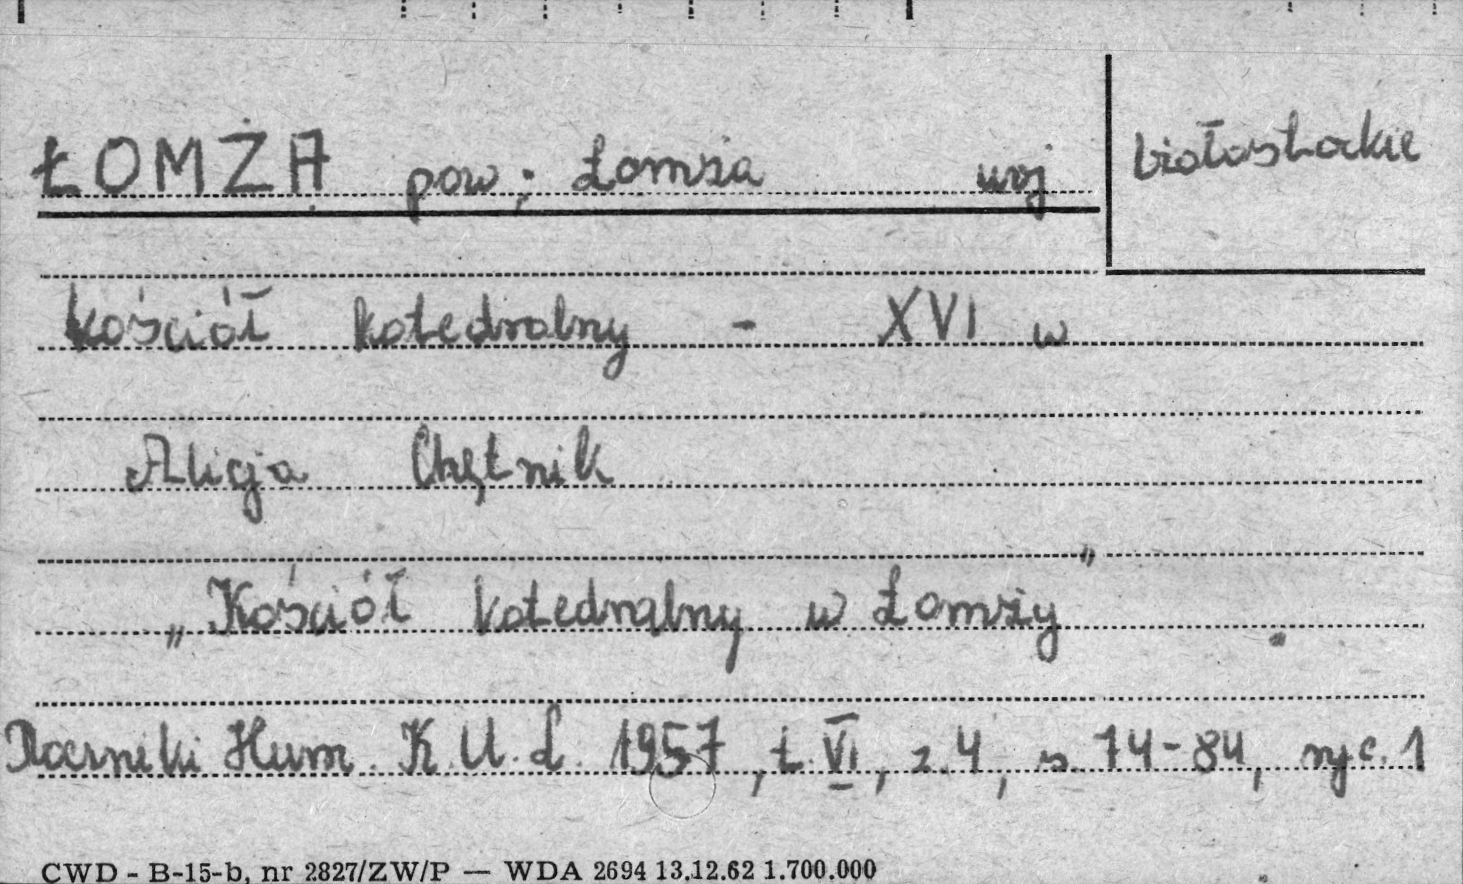 ŁOMŻA pow; Łomża woj białostockie
Kościół katedralny - XVI w
Alicja Chętnik
„Kościół katedralny w Łomży".
Roczniki Hum. K.U.L. 1957, t. VI, z.4, s. 74-84, ryc. 1
CWD - B-15-b, nr 2827/ZW/P — WDA 2694 13.12.62 1.700.000